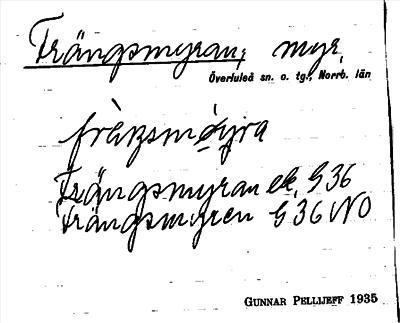 Trängsmyran, myr,
Överluleå sn. o. tg., Norrb. län
Trängsmyran ek. G 36
Trängsmyren G 36 NO
GUNNAR PELLIJEFF 1935